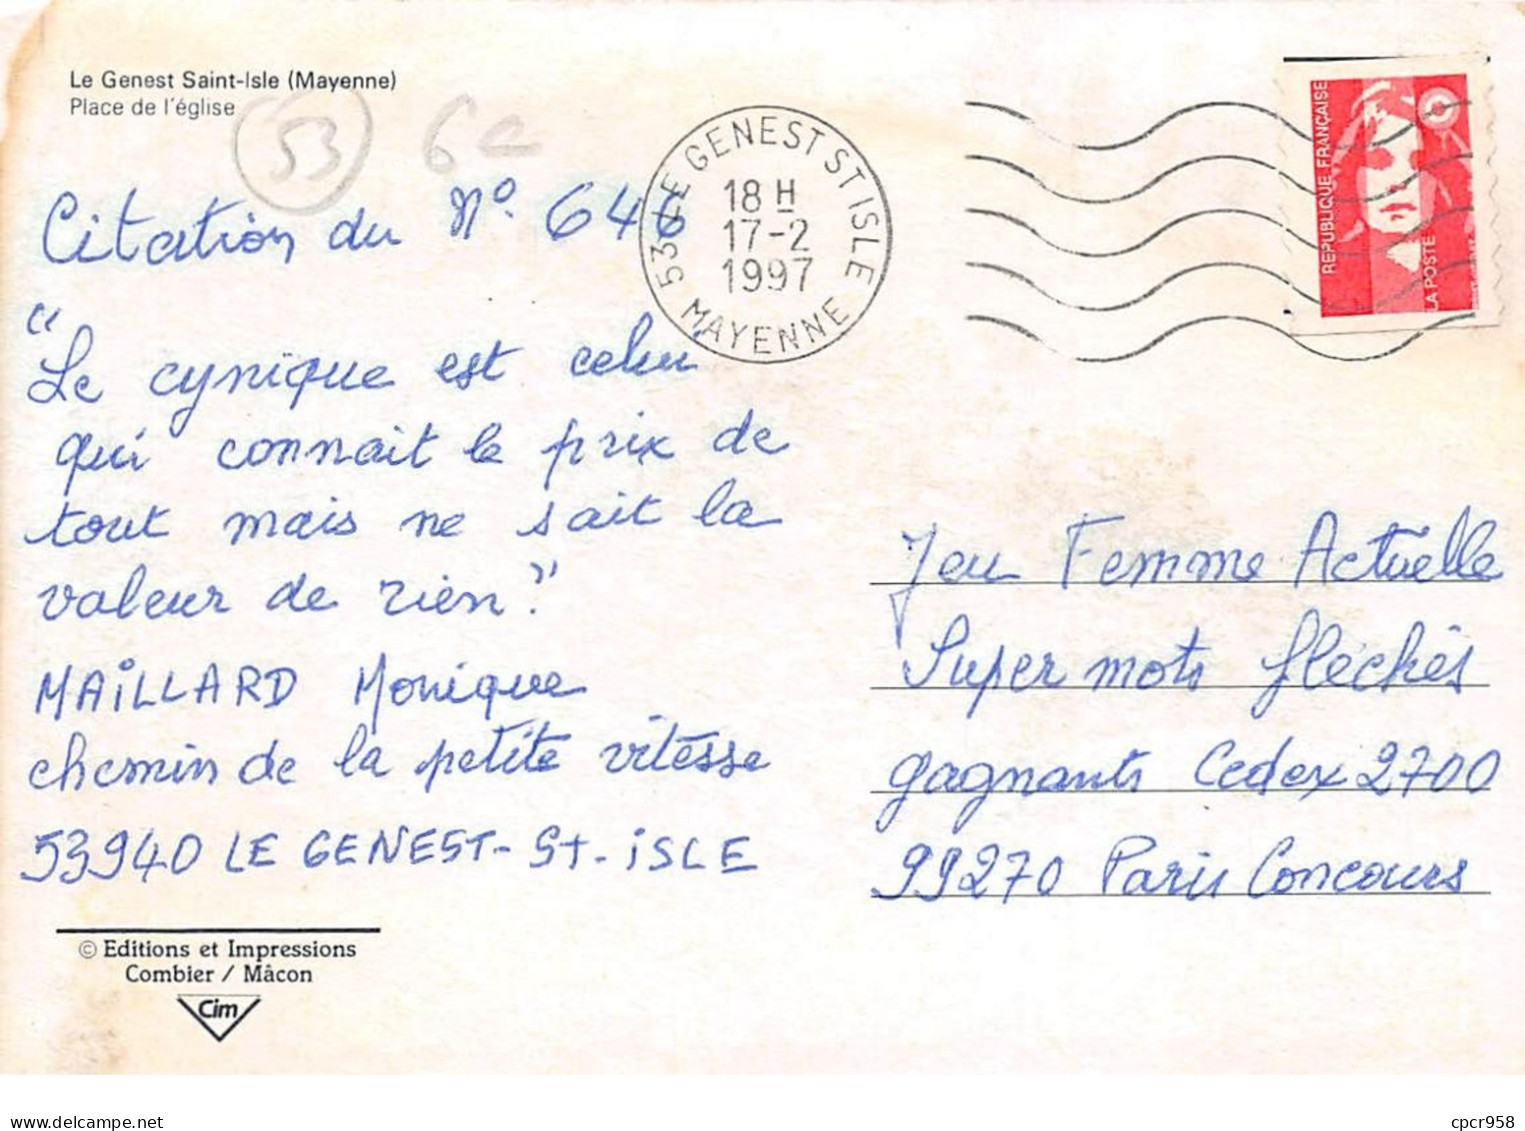 Le Genest Saint-Isle (Mayenne)
Place de l'église
53
6e
Citation du N° 646
"Le cynique est celui
qui connait le prix de
tout mais ne sait la
valeur de rien."
MAILLARD Monique
chemin de la petite vitesse
53940 LE GENEST-St-ISLE
© Editions et Impressions
Combier / Mâcon
Cim
53 LE GENEST ST ISLE
18 H
17-2
1997
MAYENNE
REPUBLIQUE FRANÇAISE
LA POSTE
Jeu Femme Actuelle
Super mots fléchés
gagnants Cedex 2700
99270 Paris Concours
cpcr958